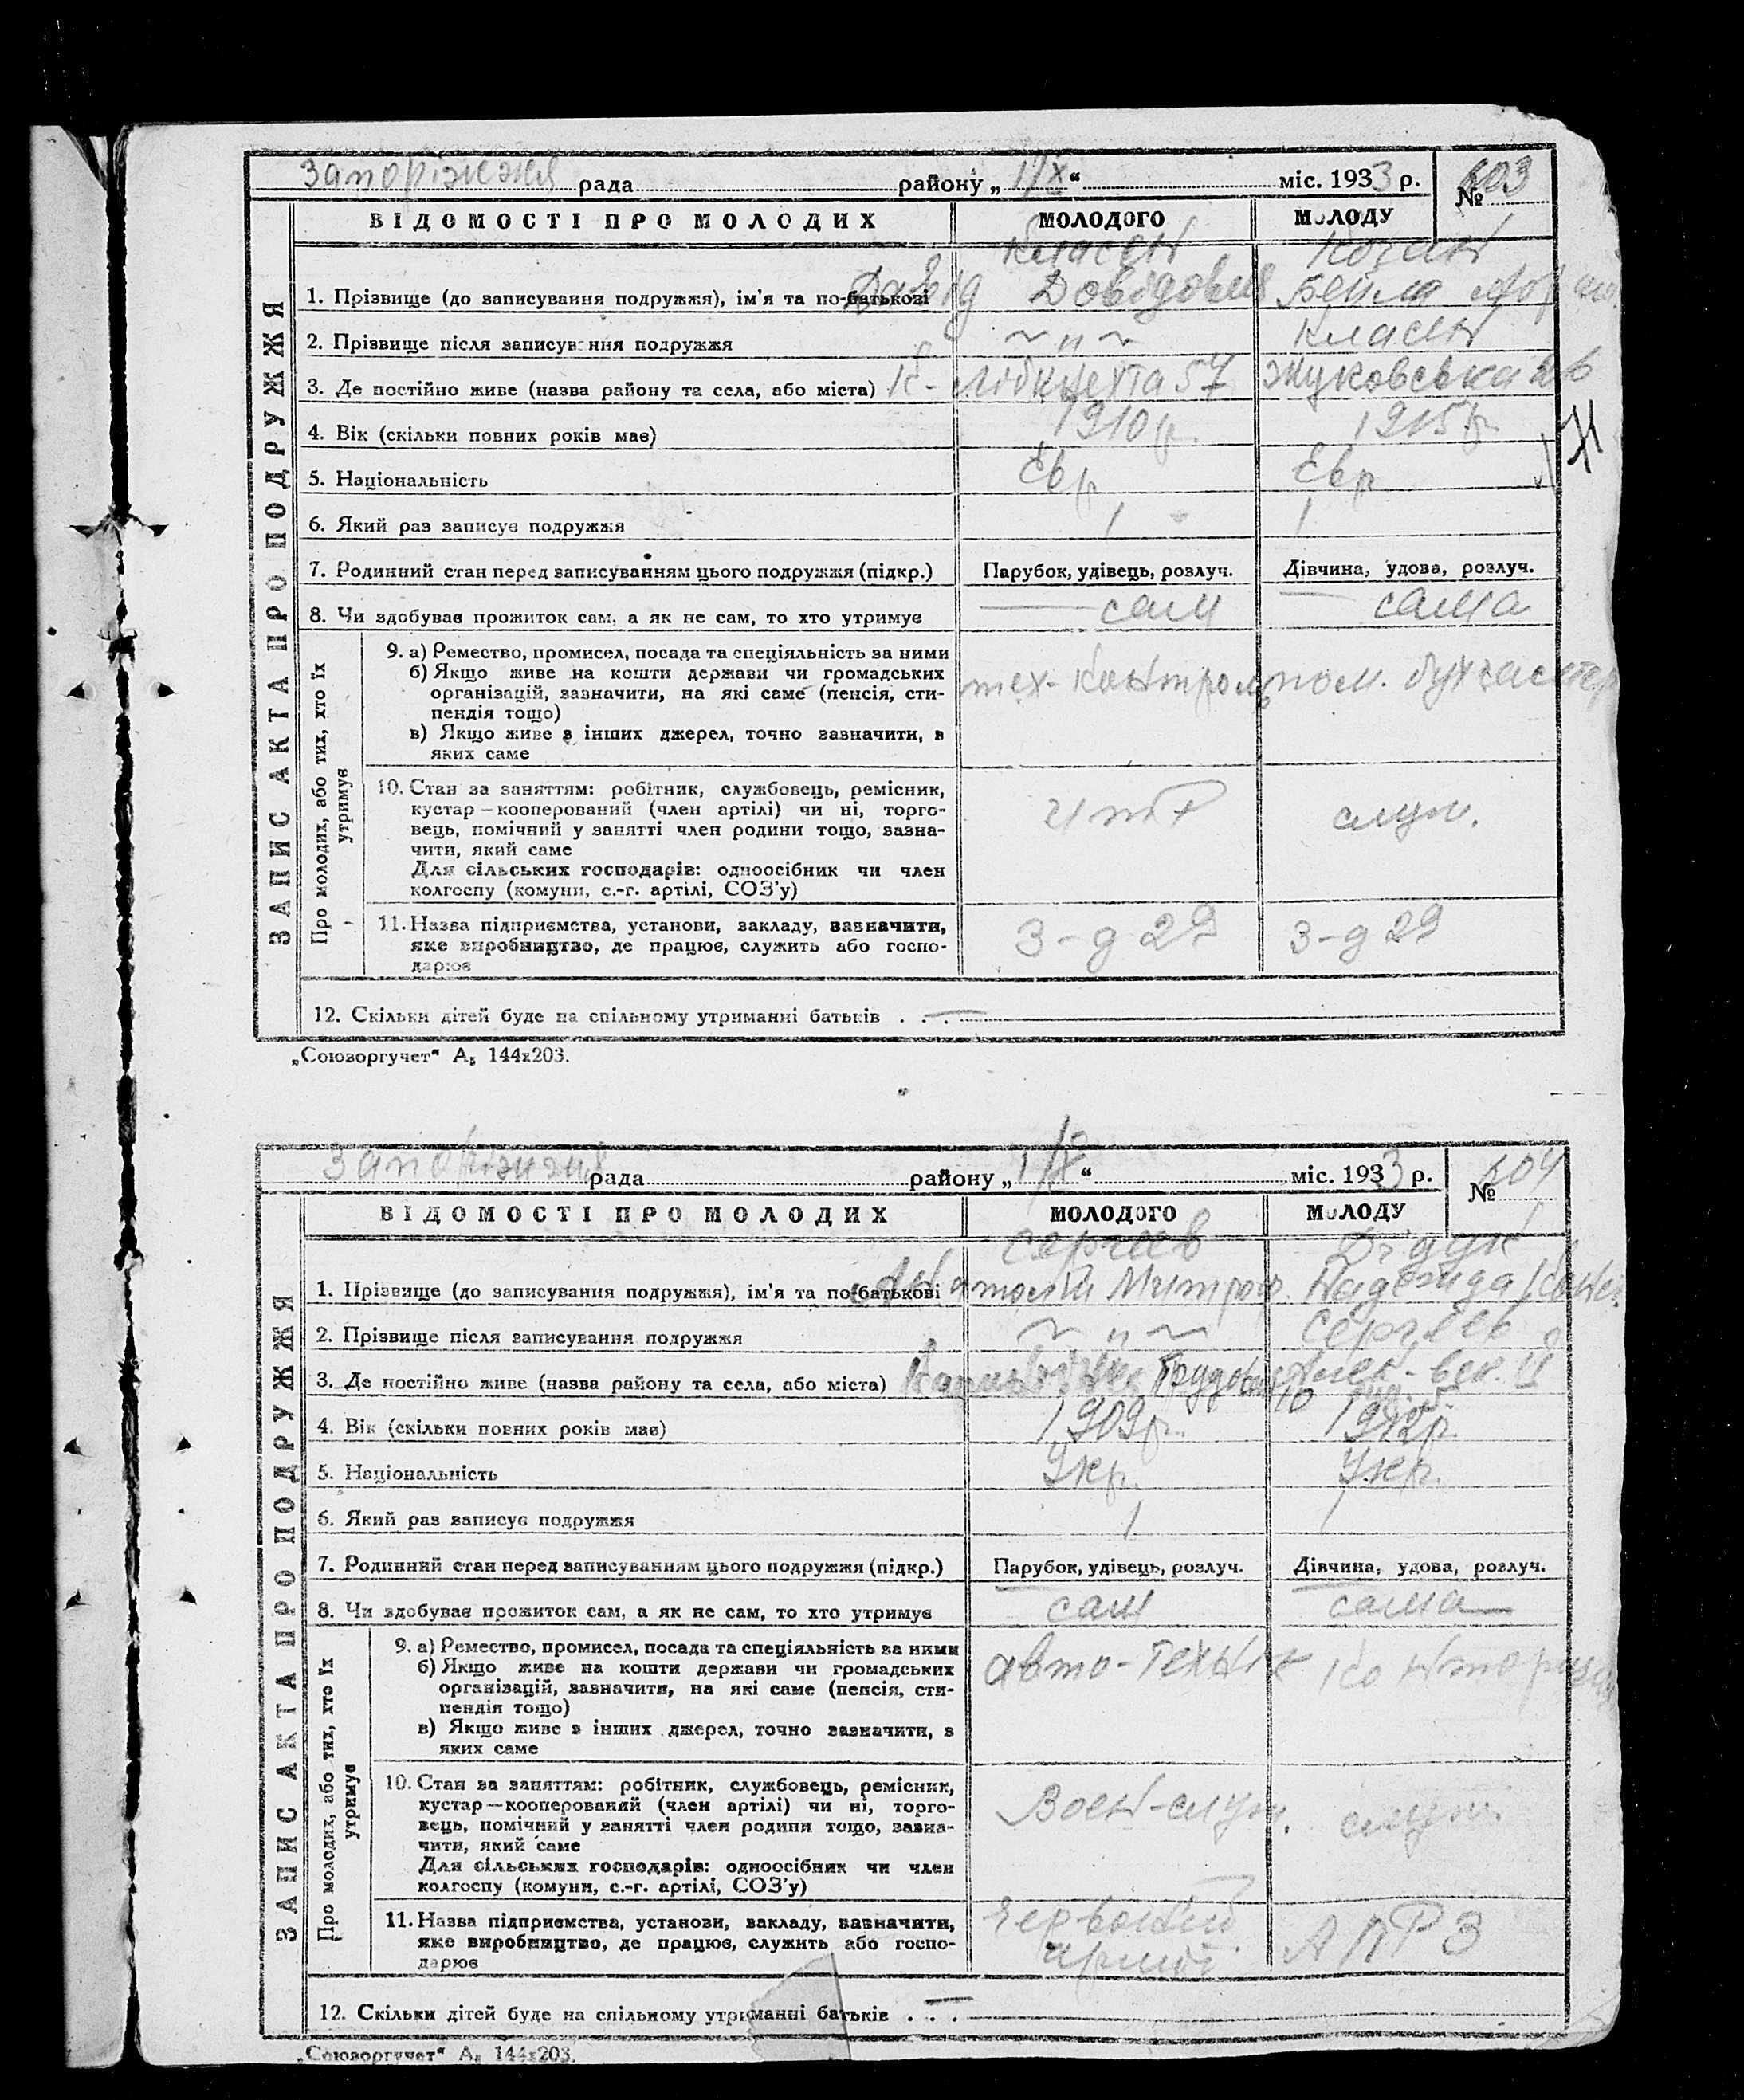 Запоріжжя рада районy „1/X“ міс. 1933 р. № 603
ВІДОМОСТІ ПРО МОЛОДИХ МОЛОДОГО МОЛОДУ
ЗАПИС АКТА ПРО ПОДРУЖЖЯ
Класен
1. Прізвище (до записування подружжя), ім'я та по-батькові Давід Довідович Бейла
2. Прізвище після записування подружжя ~ „ ~ Класен
3. Де постійно живе (назва району та села, або міста) К-Лібкнехта 57 Жуковська
4. Вік (скільки повних років має) 1910 р. 1915 р.
5. Національність Євр Євр
6. Який раз записує подружжя 1 1
7. Родинний стан перед записуванням цього подружжя (підкр.) Парубок, удівець, розлуч. Дівчина, удова, розлуч.
8. Чи здобуває прожиток сам, а як не сам, то хто утримує сам сама
Про молодих, або тих, хто їх утримує
9. а) Ремество, промисел, посада та спеціяльність за ними
б) Якщо живе на кошти держави чи громадських
організацій, зазначити, на які саме (пенсія, сти-
пендія тощо)
в) Якщо живе з інших джерел, точно зазначити, з
яких саме
тех-контроль пом. бухгалтер
10. Стан за заняттям: робітник, службовець, ремісник,
кустар—кооперований (член артілі) чи ні, торго-
вець, помічний у занятті член родини тощо, зазна-
чити, який саме
Для сільських господарів: одноосібник чи член
колгоспу (комуни, с.-г. артілі, СОЗ'у)
служ.
11. Назва підприємства, установи, закладу, зазначити,
яке виробництво, де працює, служить або госпо-
дарює
З-д 29 З-д 29
12. Скільки дітей буде на спільному утриманні батьків . . . —
„Союзоргучет“ А₅ 144х203.
Запоріжжя рада району „1/X“ міс. 1933 р. № 604
ВІДОМОСТІ ПРО МОЛОДИХ МОЛОДОГО МОЛОДУ
ЗАПИС АКТА ПРО ПОДРУЖЖЯ
Сергеев Дідук
1. Прізвище (до записування подружжя), ім'я та по-батькові Анатолій Митроф. Надежда
2. Прізвище після записування подружжя ~ „ ~ Сергеев
3. Де постійно живе (назва району та села, або міста)
4. Вік (скільки повних років має) 1909 р. 1912 р.
5. Національність Укр. Укр.
6. Який раз записує подружжя 1 1
7. Родинний стан перед записуванням цього подружжя (підкр.) Парубок, удівець, розлуч. Дівчина, удова, розлуч.
8. Чи здобуває прожиток сам, а як не сам, то хто утримує сам сама
Про молодих, або тих, хто їх утримує
9. а) Ремество, промисел, посада та спеціяльність за ними
б) Якщо живе на кошти держави чи громадських
організацій, зазначити, на які саме (пенсія, сти-
пендія тощо)
в) Якщо живе з інших джерел, точно зазначити, з
яких саме
авто-технік
10. Стан за заняттям: робітник, службовець, ремісник,
кустар—кооперований (член артілі) чи ні, торго-
вець, помічний у занятті член родини тощо, зазна-
чити, який саме
Для сільських господарів: одноосібник чи член
колгоспу (комуни, с.-г. артілі, СОЗ'у)
Воен-служ. служ.
11. Назва підприємства, установи, закладу, зазначити,
яке виробництво, де працює, служить або госпо-
дарює
Червоний армії АПРЗ
12. Скільки дітей буде на спільному утриманні батьків . . . —
„Союзоргучет“ А₅ 144х203.